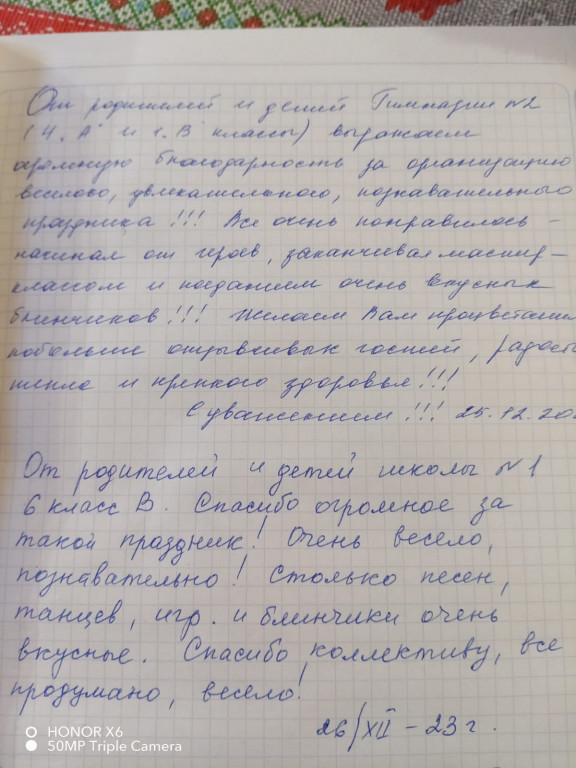 От родителей и детей Гимназии №2
(4 "А" и 1 "В" классы) выражаем
огромную благодарность за организацию
веселого, увлекательного, познавательного
праздника!!! Все очень понравилось –
начиная от героев, заканчивая мастер-
классом и поеданием очень вкусных
блинчиков!!! Желаем Вам процветания
побольше отзывчивых гостей,
тепла и крепкого здоровья!!!
С уважением!!! 25.12.20
От родителей и детей школы №1
6 класс В. Спасибо огромное за
такой праздник! Очень весело,
познавательно! Столько песен,
танцев, игр. и блинчики очень
вкусные. Спасибо коллективу, все
продумано, весело!
26/XII – 23 г.
HONOR X6
50MP Triple Camera